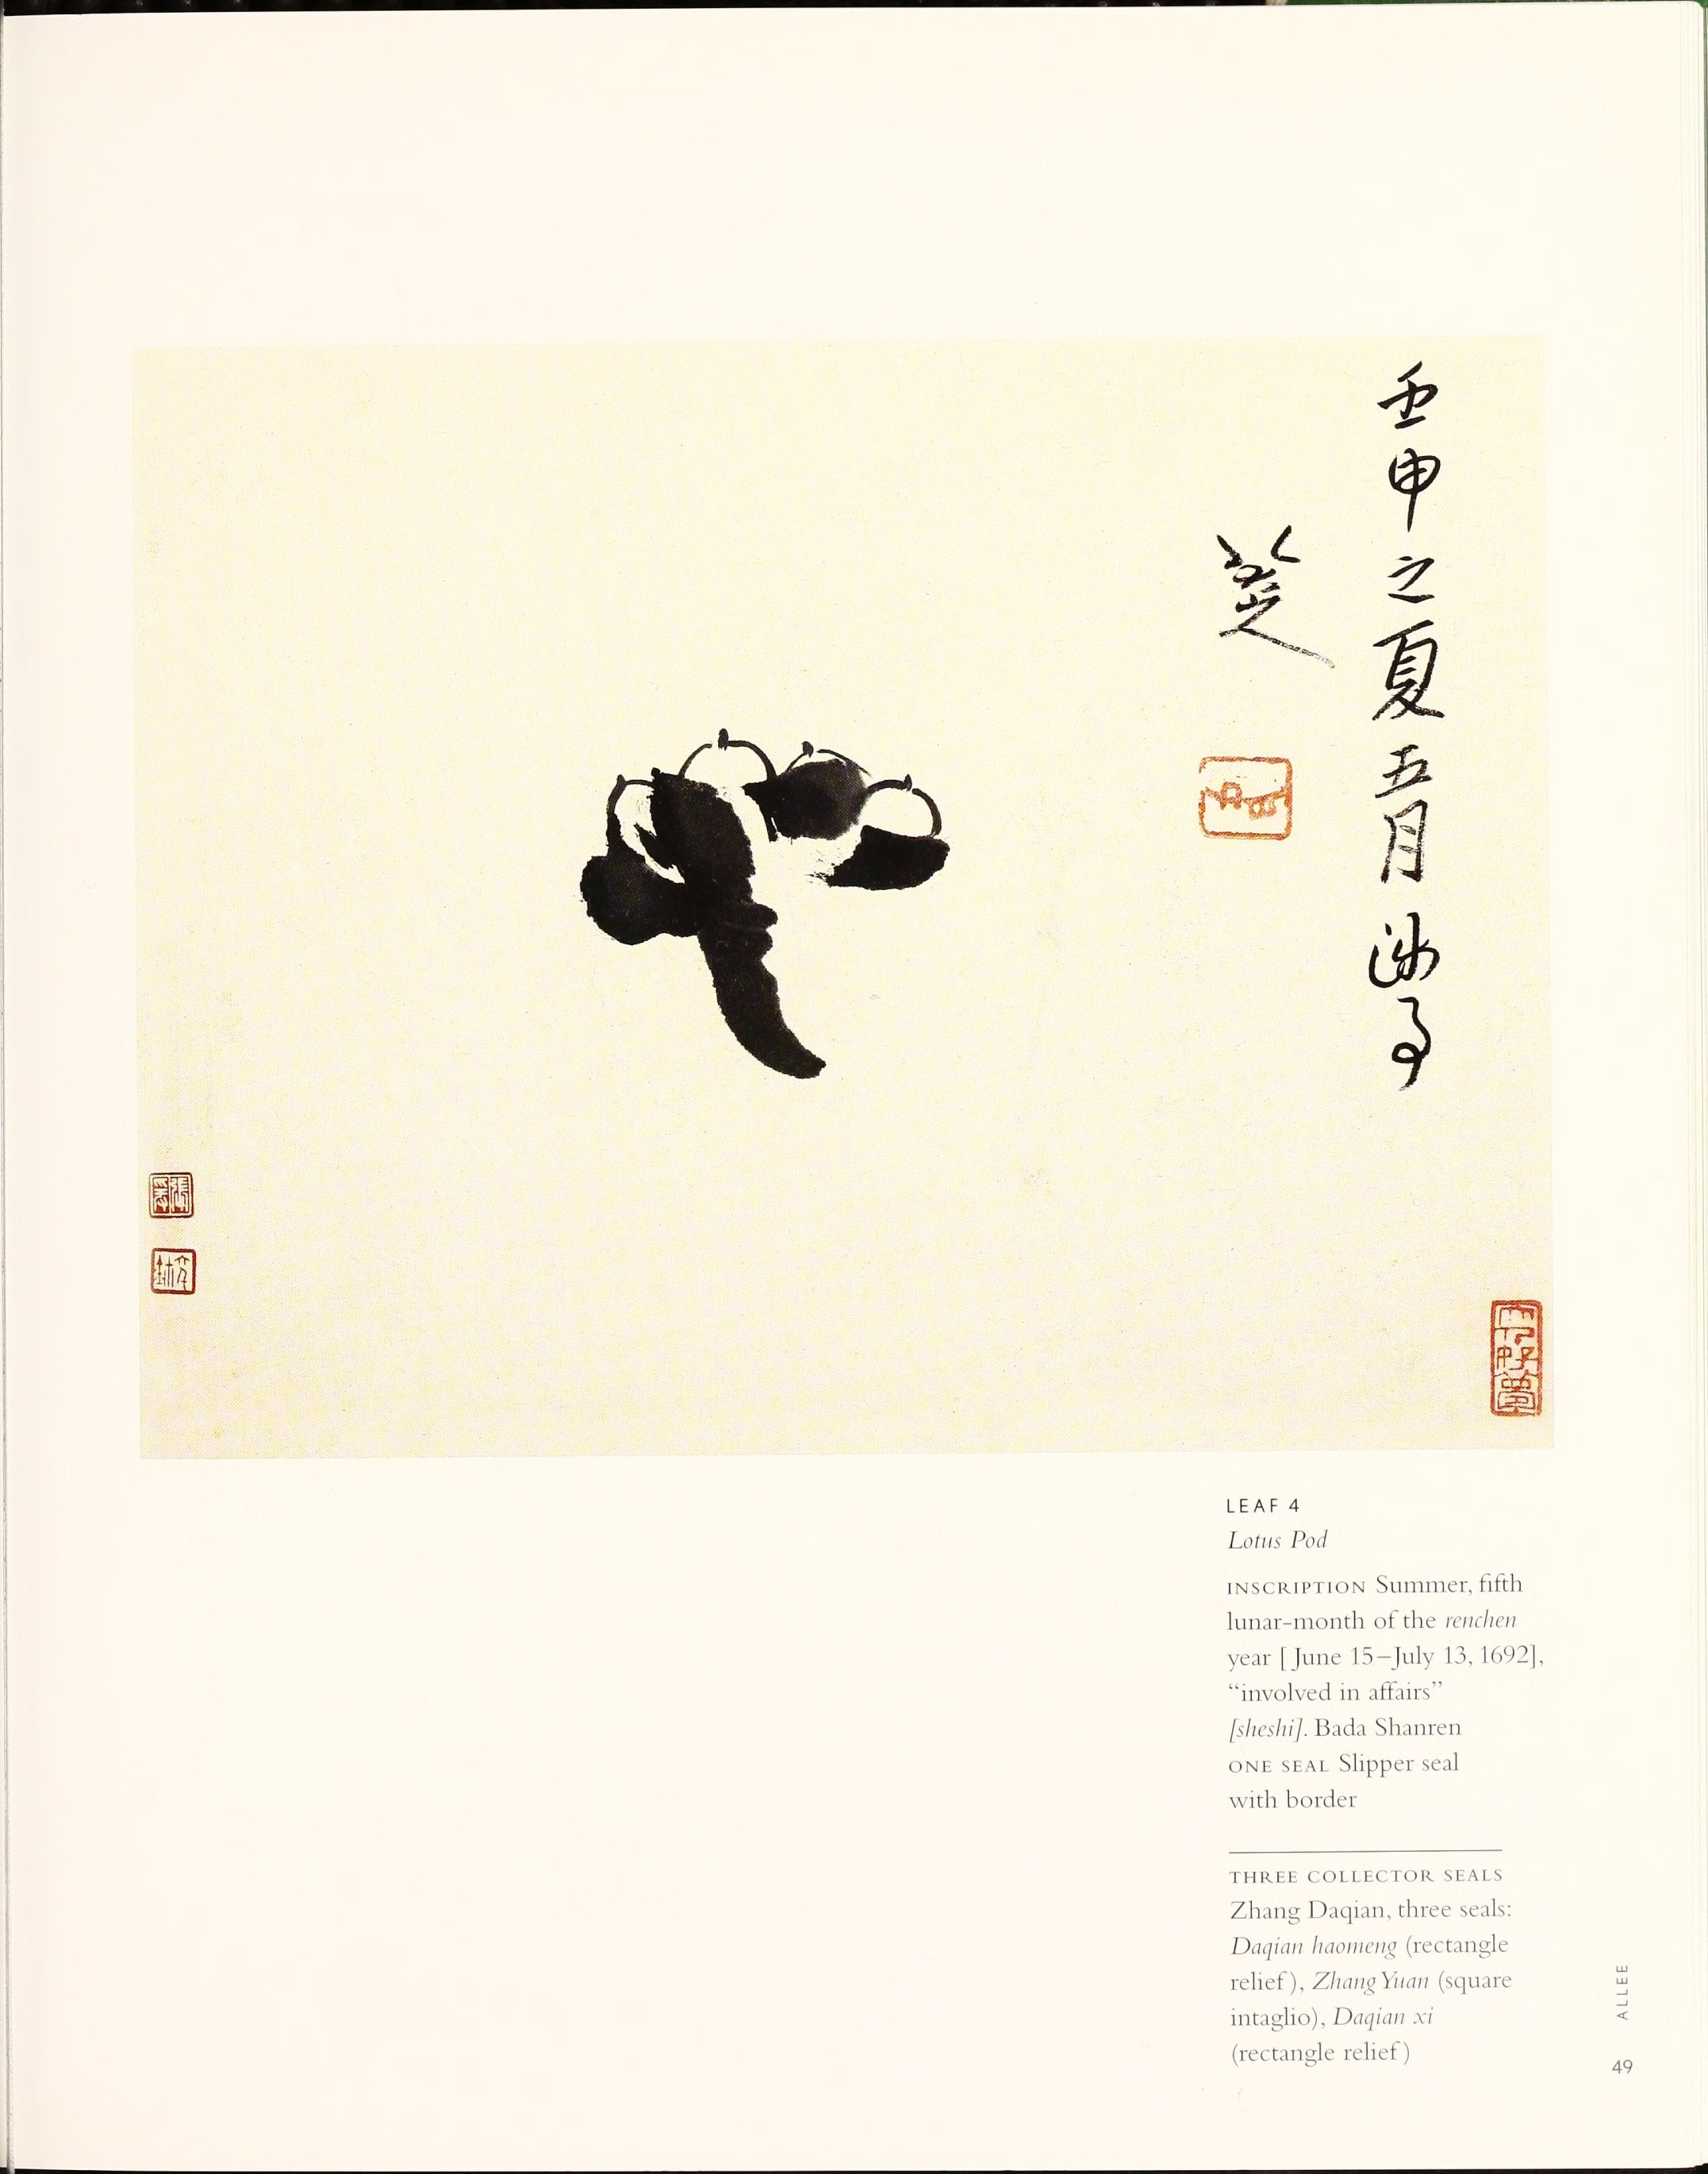 壬申之夏五月涉事
八大山人
LEAF 4
Lotus Pod
INSCRIPTION Summer, fifth
lunar-month of the renchen
year [June 15–July 13, 1692],
“involved in affairs”
[sheshi]. Bada Shanren
ONE SEAL Slipper seal
with border
THREE COLLECTOR SEALS
Zhang Daqian, three seals:
Daqian haomeng (rectangle
relief), Zhang Yuan (square
intaglio), Daqian xi
(rectangle relief)
ALLEE
49